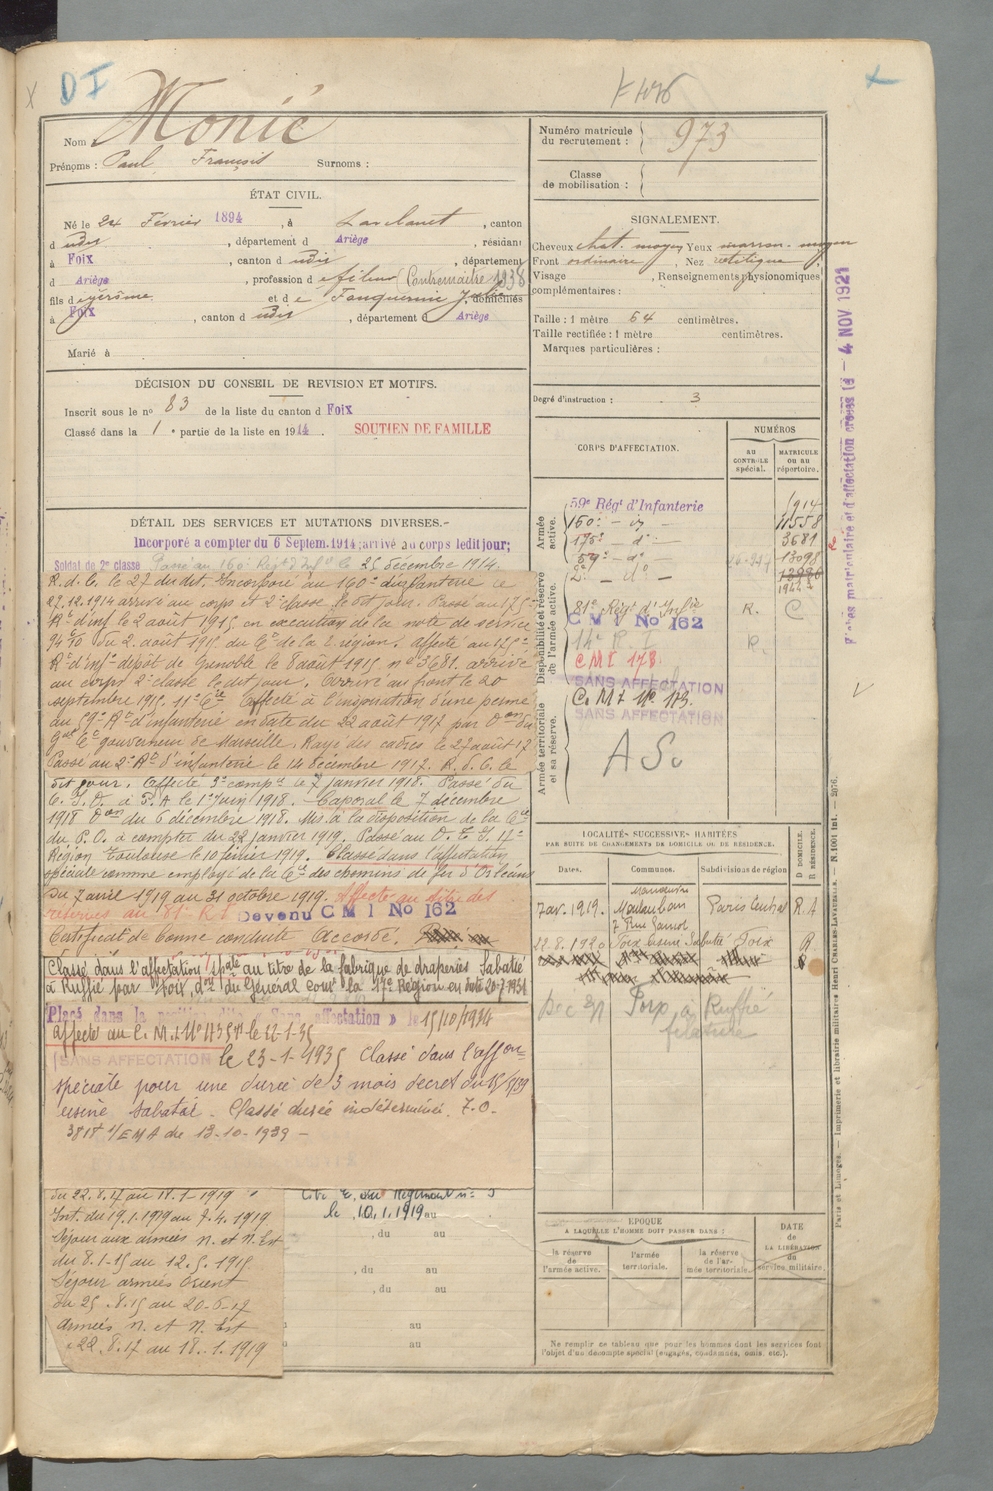 D I
Monié
Nom
Prénoms : Paul François Surnoms :
ÉTAT CIVIL.
Né le 24 Février 1894, à Lavelanet, canton
d udit, département d Ariège, résidant
à Foix, canton d udit, département
d Ariège, profession d e fileur (Contremaître 1938
fils d e Jérôme et d e Fauquernie Julie, domiciliés
à Foix, canton d udit, département d Ariège
Marié à
DÉCISION DU CONSEIL DE REVISION ET MOTIFS.
Inscrit sous le no 83 de la liste du canton d Foix
Classé dans la 1e partie de la liste en 1914. SOUTIEN DE FAMILLE
DÉTAIL DES SERVICES ET MUTATIONS DIVERSES.-
Incorporé a compter du 6 Septem. 1914; arrivé au corps ledit jour;
Soldat de 2e classe Passé au 160e Régt d'Infie le 25 décembre 1914.
R. d. C. le 27 du dit. Incorporé au 160e d'infanterie le
27.12.1914 arrivé au corps et 2e classe le dit jour. Passé au 175e
Rt d'inf le 2 août 1915 en exécution de la note de service
94 du 2 août 1915 du Gl de la 2e région. Affecté au 175e
Rt d'inf dépôt de Grenoble le 8 août 1915 no 3681. arrivé
au corps 2e classe le dit jour. Arrivé au front le 20
septembre 1915. 11e Cie Affecté à l'expiration d'une perme
au 59e Rt d'infanterie en date du 22 août 1917 par Don du
Gal Ct gouverneur de Marseille. Rayé des cadres le 27 août 17
Passé au 2e Rt d'infanterie le 14 décembre 1917. R. d. C. le
dit jour. Affecté 3e compie le 7 janvier 1918. Passé du
C. I. D. à P. A le 1er juin 1918. Caporal le 7 décembre
1918 Don du 6 décembre 1918. Mis à la disposition de la Cie
du P. O. à compter du 22 janvier 1919. Passé au D. T. I. 17e
Région Toulouse le 10 février 1919. Classé dans l'affectation
spéciale comme employé de la Cie des chemins de fer d'Orléans
du 7 avril 1919 au 31 octobre 1919. Affecté au titre des
réserves au 81e R. I. Devenu C M I No 162
Certificat de bonne conduite Accordé.
Classé dans l'affectation spéale au titre de la fabrique de draperies Sabatié
à Ruffié par Foix, don du Général comt la 17e Région en date 20-7-1931
Placé dans la position dite « Sans affectation » le 15/10/1934
affecté au C. M. I No 173 le 22-1-35
SANS AFFECTATION le 23-1-1935 Classé dans l'affon
spéciale pour une durée de 3 mois decret du 15/5/39
usine Sabatié. Classé durée indéterminée. T.O.
3818 1/EMA du 13-10-1939 -
du 22.8.17 au 18.1-1919
Int. du 19.1.1919 au 7.4.1919
Séjour aux armées N. et N. Est
du 8.1-15 au 12.5.1915
Séjour armées Orient
du 25.8.15 au 20-6-17
Armées N. et N. Est
22.8.17 au 18.1.1919
le 10.1.1919 au
, du au
, du au
, du au
au
au
Numéro matricule
du recrutement : 973
Classe
de mobilisation :
SIGNALEMENT.
Cheveux chat. moyen Yeux marron-moyen
Front ordinaire, Nez rectiligne,
Visage, Renseignements physionomiques
complémentaires :
Taille : 1 mètre 64 centimètres.
Taille rectifiée : 1 mètre centimètres.
Marques particulières :
Degré d'instruction : 3
CORPS D'AFFECTATION.
NUMÉROS
AU CONTROLE spécial.
MATRICULE ou au répertoire.
Armée active.
59e Régt d'Infanterie 1914
160e - d° - 11558
175e - d° - 3681
59e - d° - 13098
2e - d° -
Disponibilité et réserve de l'armée active.
81e Régt d'Infie R. C
C M I No 162
14e R. I R.
CMI 173
SANS AFFECTATION
Armée territoriale et sa réserve.
C. M I No 173.
SANS AFFECTATION
A S
LOCALITÉS SUCCESSIVES HABITÉES
PAR SUITE DE CHANGEMENTS DE DOMICILE OU DE RÉSIDENCE.
Dates. Communes. Subdivisions de région
D DOMICILE. R RÉSIDENCE.
7 av. 1919. Montauban Paris Central R. A
22.8.1920 Foix usine Sabatié Foix R.
Dec 31 Foix, à Ruffié
filature
ÉPOQUE
A LAQUELLE L'HOMME DOIT PASSER DANS :
la réserve de l'armée active.
l'armée territoriale.
la réserve de l'armée territoriale.
DATE de LA LIBÉRATION du service militaire.
Ne remplir ce tableau que pour les hommes dont les services font
l'objet d'un décompte spécial (engagés, condamnés, omis, etc.).
4 NOV 1921
Paris et Limoges. — Imprimerie et librairie militaires Henri CHARLES-LAVAUZELLE. — N. 1001 int.